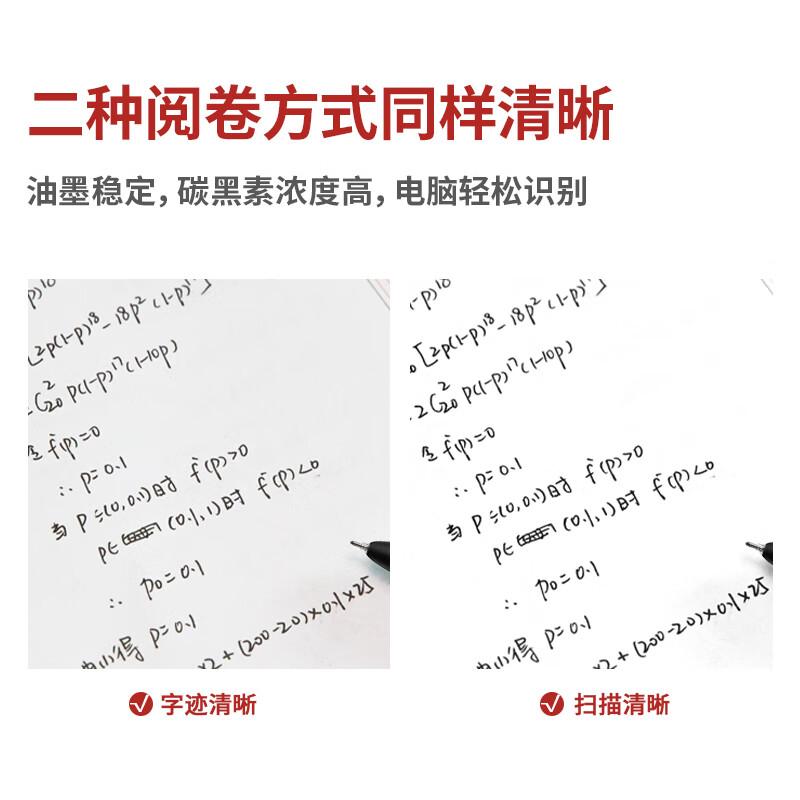 二种阅卷方式同样清晰
油墨稳定，碳黑素浓度高，电脑轻松识别
[2p(1-p)¹⁸-18p²(1-p)¹⁷]
=C²₂₀ p(1-p)¹⁷(1-10p)
f'(p)=0
∴ p=0.1
当 p=(0,0.1)时 f'(p)>0
p∈ (0.1,1)时 f'(p)<0
∴ p₀=0.1
得 p=0.1
×2+(200-20)×0.1×25
字迹清晰
[2p(1-p)¹⁸-18p²(1-p)¹⁷]
2C²₂₀ p(1-p)¹⁷(1-10p)
f'(p)=0
∴ p=0.1
当 p=(0,0.1)时 f'(p)>0
p∈ (0.1,1)时 f'(p)<0
∴ p₀=0.1
得 p=0.1
×2+(200-20)×0.1×25
扫描清晰